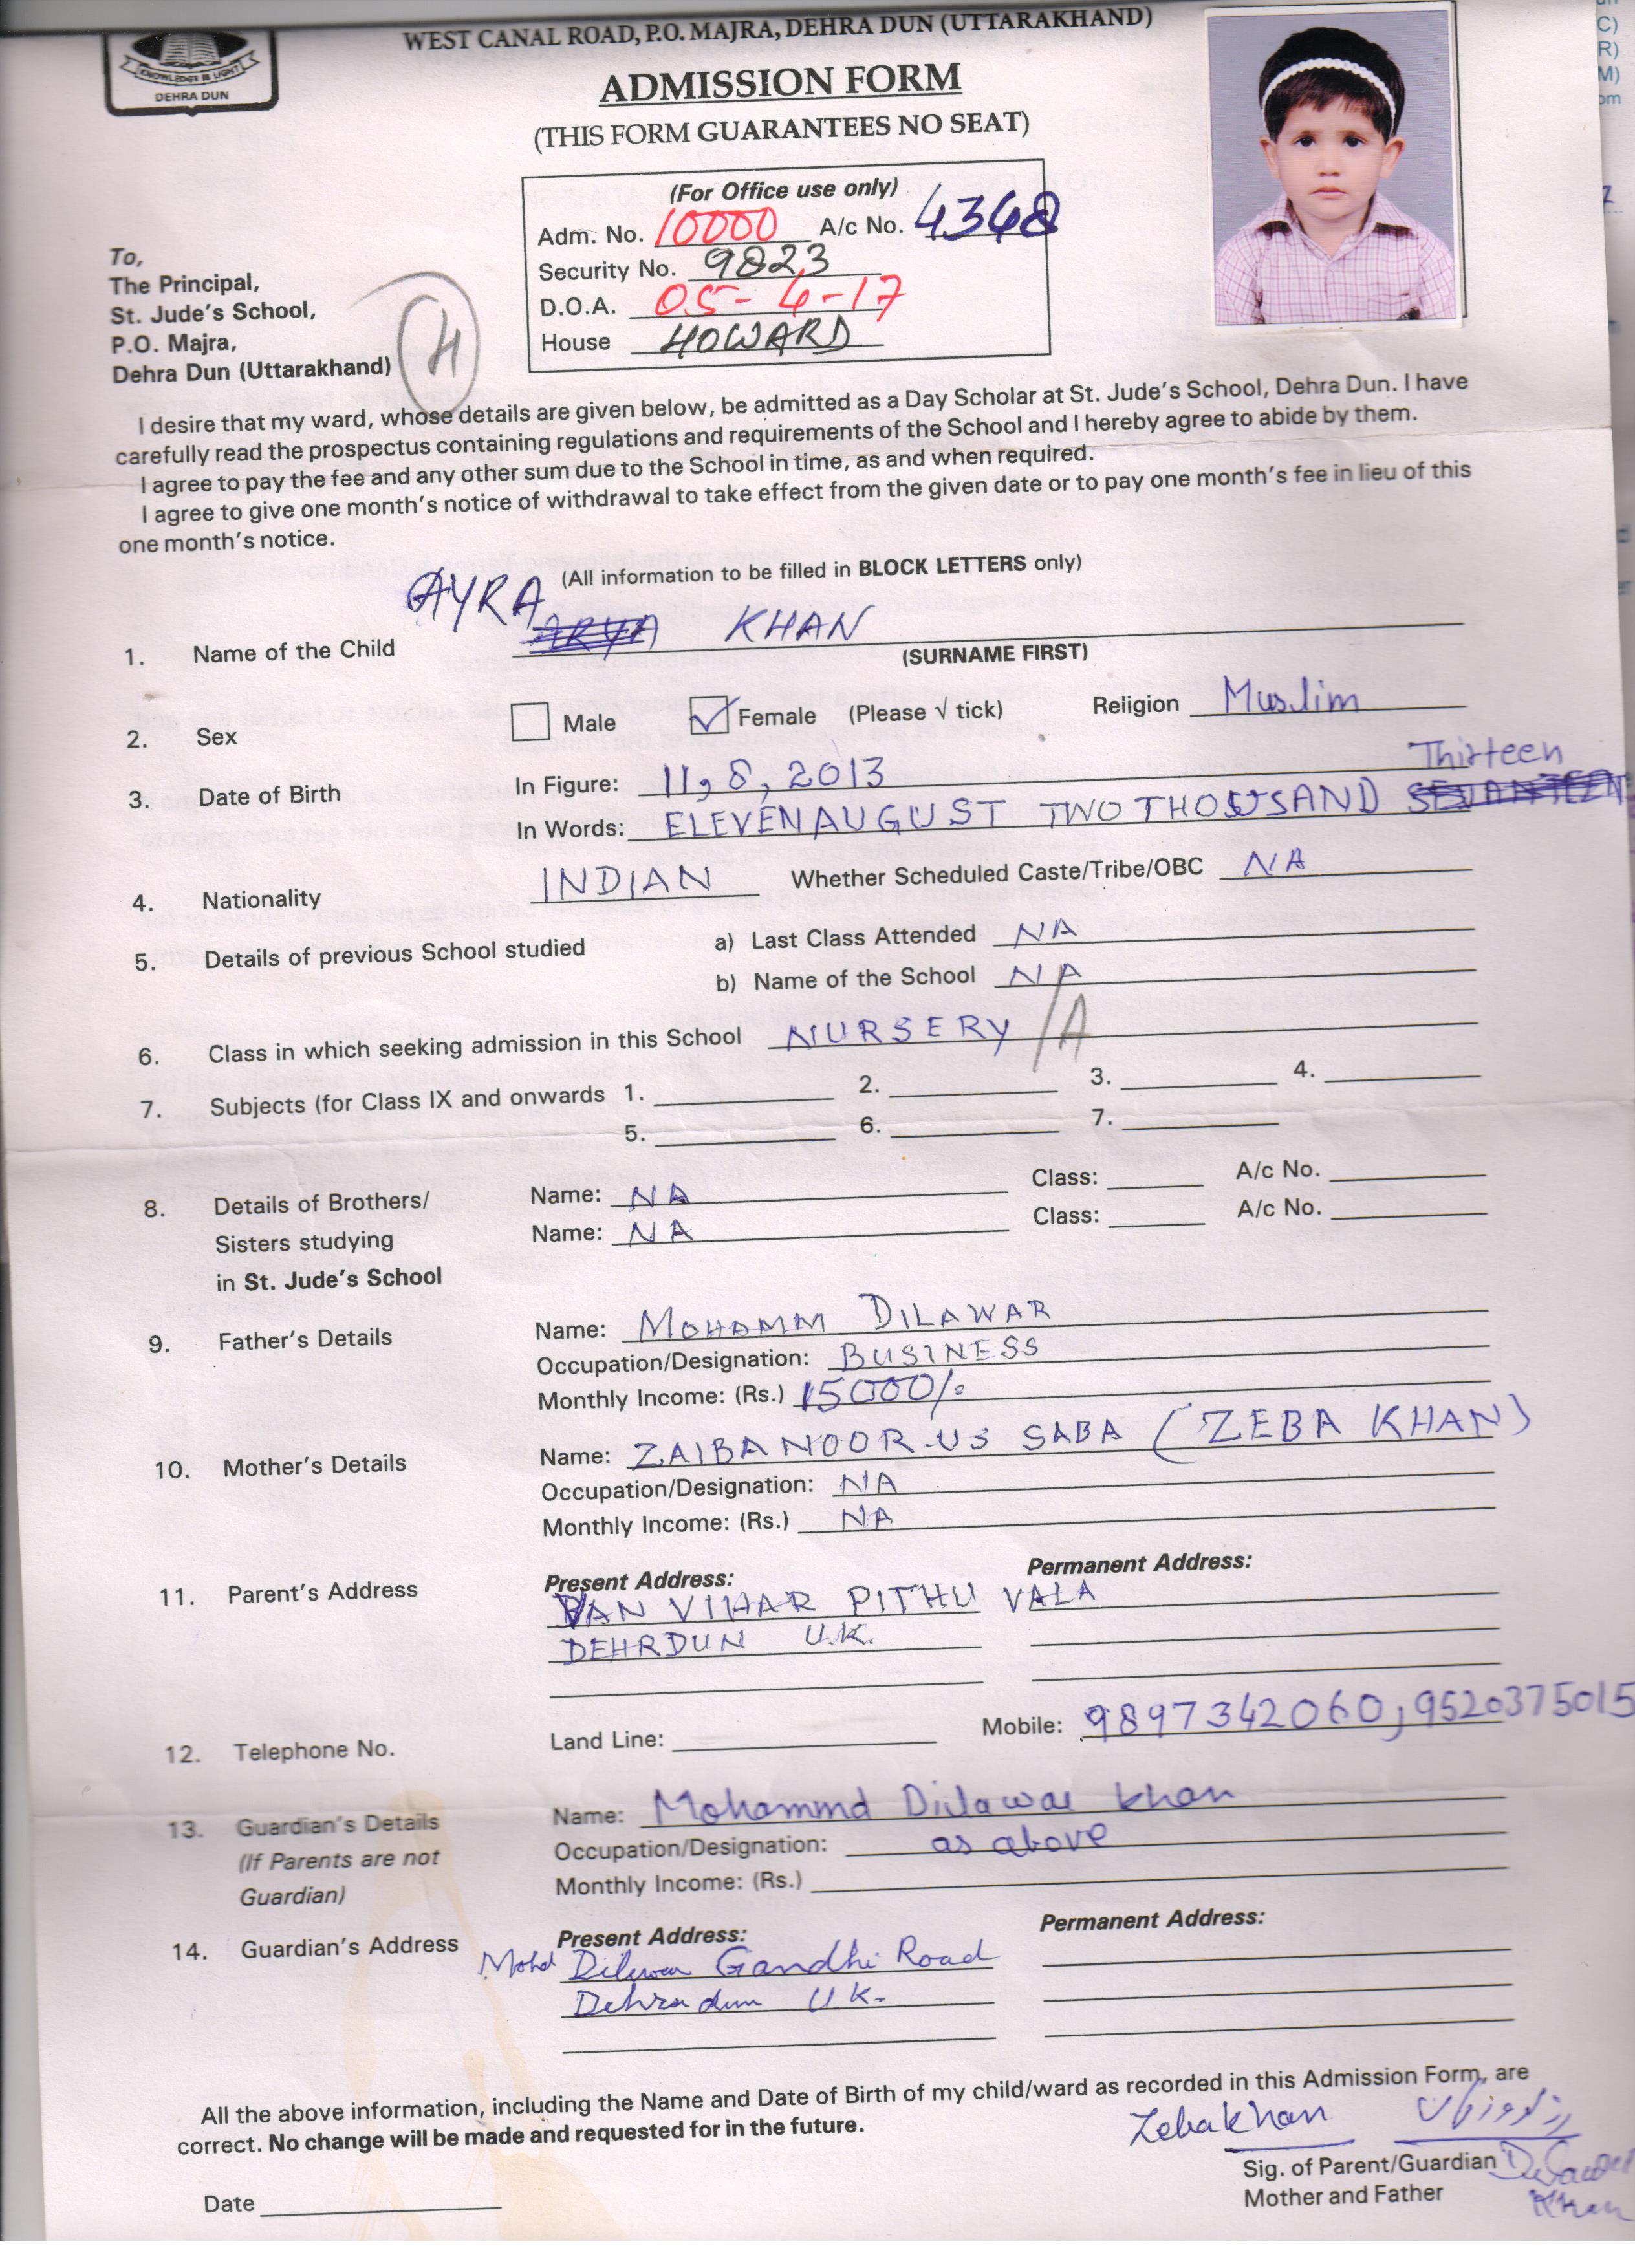 WEST CANAL ROAD, P.O. MAJRA, DEHRA DUN (UTTARAKHAND)
KNOWLEDGE IS LIGHT
DEHRA DUN
ADMISSION FORM
(THIS FORM GUARANTEES NO SEAT)
(For Office use only)
Adm. No. 10000 A/c No. 4368
Security No. 9823
D.O.A. 05-4-17
House HOWARD
To,
The Principal,
St. Jude's School,
P.O. Majra,
Dehra Dun (Uttarakhand)
H
I desire that my ward, whose details are given below, be admitted as a Day Scholar at St. Jude's School, Dehra Dun. I have
carefully read the prospectus containing regulations and requirements of the School and I hereby agree to abide by them.
I agree to pay the fee and any other sum due to the School in time, as and when required.
I agree to give one month's notice of withdrawal to take effect from the given date or to pay one month's fee in lieu of this
one month's notice.
(All information to be filled in BLOCK LETTERS only)
1. Name of the Child AYRA KHAN
(SURNAME FIRST)
2. Sex Male Female (Please √ tick) Religion Muslim
3. Date of Birth In Figure: 11, 8, 2013
In Words: ELEVEN AUGUST TWO THOUSAND SEVANTEEN Thirteen
4. Nationality INDIAN Whether Scheduled Caste/Tribe/OBC NA
5. Details of previous School studied a) Last Class Attended NA
b) Name of the School NA
6. Class in which seeking admission in this School NURSERY /A
7. Subjects (for Class IX and onwards 1. 2. 3. 4.
5. 6. 7.
8. Details of Brothers/ Name: NA Class: A/c No.
Sisters studying Name: NA Class: A/c No.
in St. Jude's School
9. Father's Details Name: MOHAMM DILAWAR
Occupation/Designation: BUSINESS
Monthly Income: (Rs.) 15000/-
10. Mother's Details Name: ZAIBA NOOR-US SABA (ZEBA KHAN)
Occupation/Designation: NA
Monthly Income: (Rs.) NA
11. Parent's Address Present Address: Permanent Address:
VAN VIHAR PITHU VALA
DEHRDUN U.K.
12. Telephone No. Land Line: Mobile: 9897342060, 9520375015
13. Guardian's Details Name: Mohammd Dilawar Khan
(If Parents are not Occupation/Designation: as above
Guardian) Monthly Income: (Rs.)
14. Guardian's Address Present Address: Permanent Address:
Mohd Dilawar Gandhi Road
Dehradun U.K-
All the above information, including the Name and Date of Birth of my child/ward as recorded in this Admission Form, are
correct. No change will be made and requested for in the future.
Zeba Khan
Sig. of Parent/Guardian Dilawar
Mother and Father Khan
Date